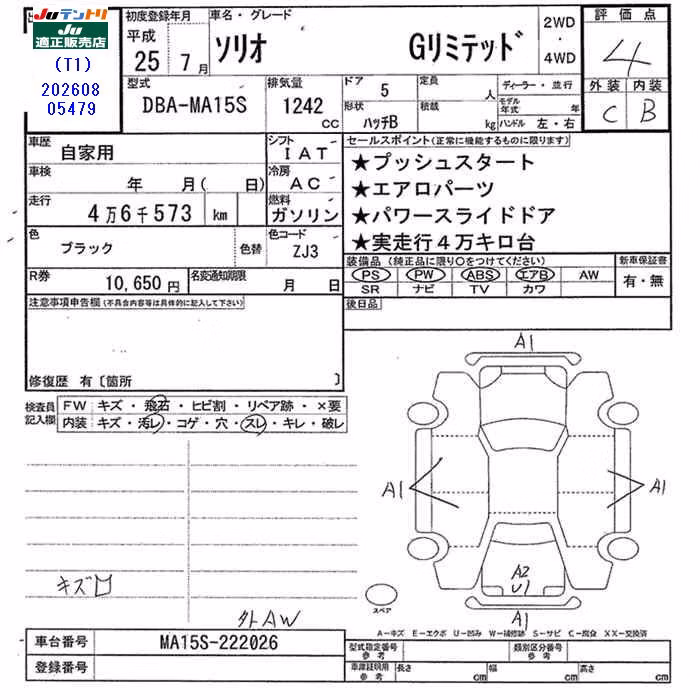 Juテントリ
Ju
適正販売店
(T1)
202608
05479
初度登録年月
平成
25 7月
車名・グレード
ソリオ Gリミテッド
2WD
・
4WD
評価点
4
外装 内装
C B
型式
DBA-MA15S
排気量
1242
CC
ドア 5
形状
ハッチB
定員
人
積載
kg
ディーラー・並行
モデル年式 年
ハンドル 左・右
車歴
自家用
シフト
IAT
車検
年 月( 日)
冷房
AC
走行
4万6千573 km
燃料
ガソリン
色
ブラック
色替
色コード
ZJ3
R券
10,650円
名変通知期限
月 日
セールスポイント(正常に機能するものに限ります)
★プッシュスタート
★エアロパーツ
★パワースライドドア
★実走行4万キロ台
装備品(純正品に限り○をつけてください)
PS PW ABS エアB AW
SR ナビ TV カワ
新車保証書
有・無
後日品
注意事項申告欄(不具合内容等は具体的に記入して下さい)
修復歴 有〔箇所 〕
検査員
記入欄
FW キズ・飛石・ヒビ割・リペア跡・×要
内装 キズ・汚レ・コゲ・穴・スレ・キレ・破レ
キズ
外AW
A1
A1
A1
A2
U1
A1
スペア
A-キズ E-エクボ U-凹み W-補修跡 S-サビ C-腐食 XX-交換済
車台番号
MA15S-222026
登録番号
型式指定番号
参考
類別区分番号
参考
車庫証明用
参考
長さ cm
幅 cm
高さ cm